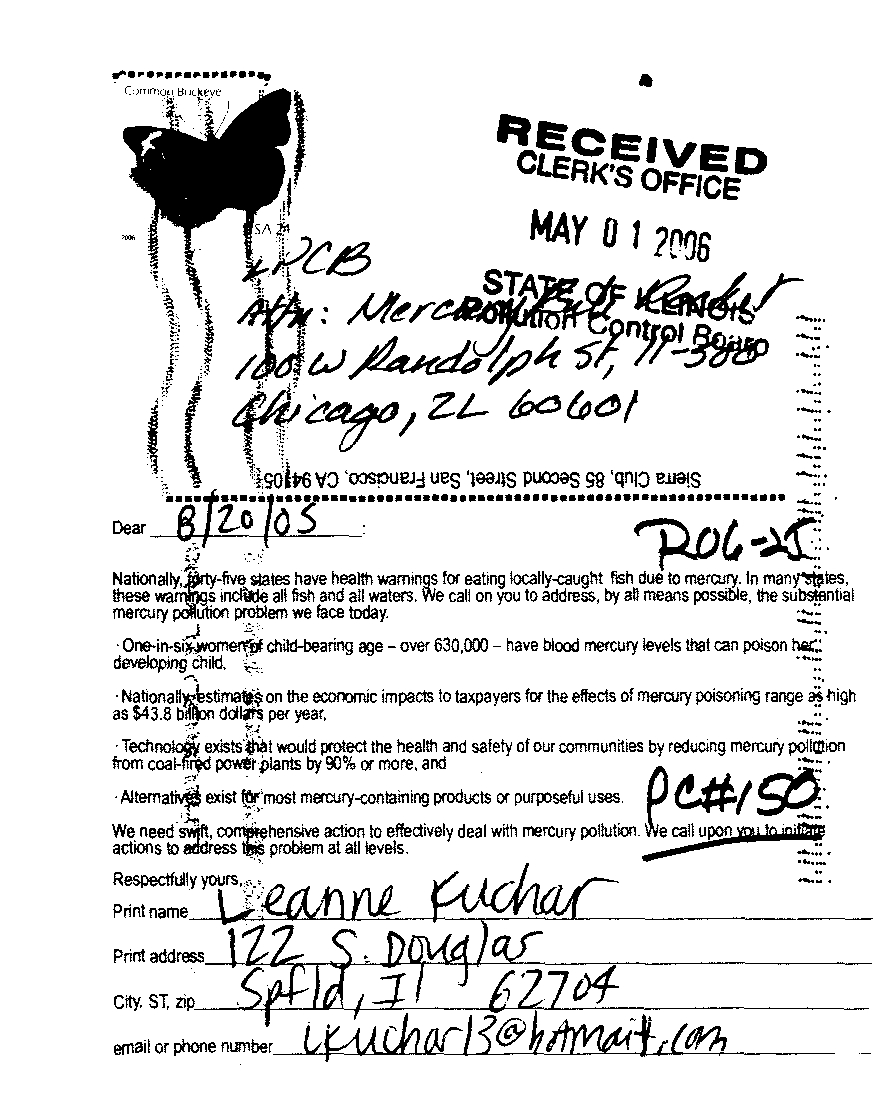 Common Buckeye
2006
USA 24
RECEIVED
CLERK'S OFFICE
MAY 01 2006
STATE OF ILLINOIS
Pollution Control Board
IPCB
Attn: Mercury
100 W Randolph St, 11-500
Chicago, IL 60601
Sierra Club, 85 Second Street, San Francisco, CA 94105
Dear 8/20/05 :
R06-25
Nationally, forty-five states have health warnings for eating locally-caught fish due to mercury. In many states,
these warnings include all fish and all waters. We call on you to address, by all means possible, the substantial
mercury pollution problem we face today.
· One-in-six women of child-bearing age – over 630,000 – have blood mercury levels that can poison her
developing child,
· Nationally, estimates on the economic impacts to taxpayers for the effects of mercury poisoning range as high
as $43.8 billion dollars per year,
· Technology exists that would protect the health and safety of our communities by reducing mercury pollution
from coal-fired power plants by 90% or more, and
· Alternatives exist for most mercury-containing products or purposeful uses.
PC#150
We need swift, comprehensive action to effectively deal with mercury pollution. We call upon you to initiate
actions to address this problem at all levels.
Respectfully yours,
Print name Leanne Kuchar
Print address 122 S. Douglas
City, ST, zip Spfld, Il 62704
email or phone number lkuchar13@hotmail.com